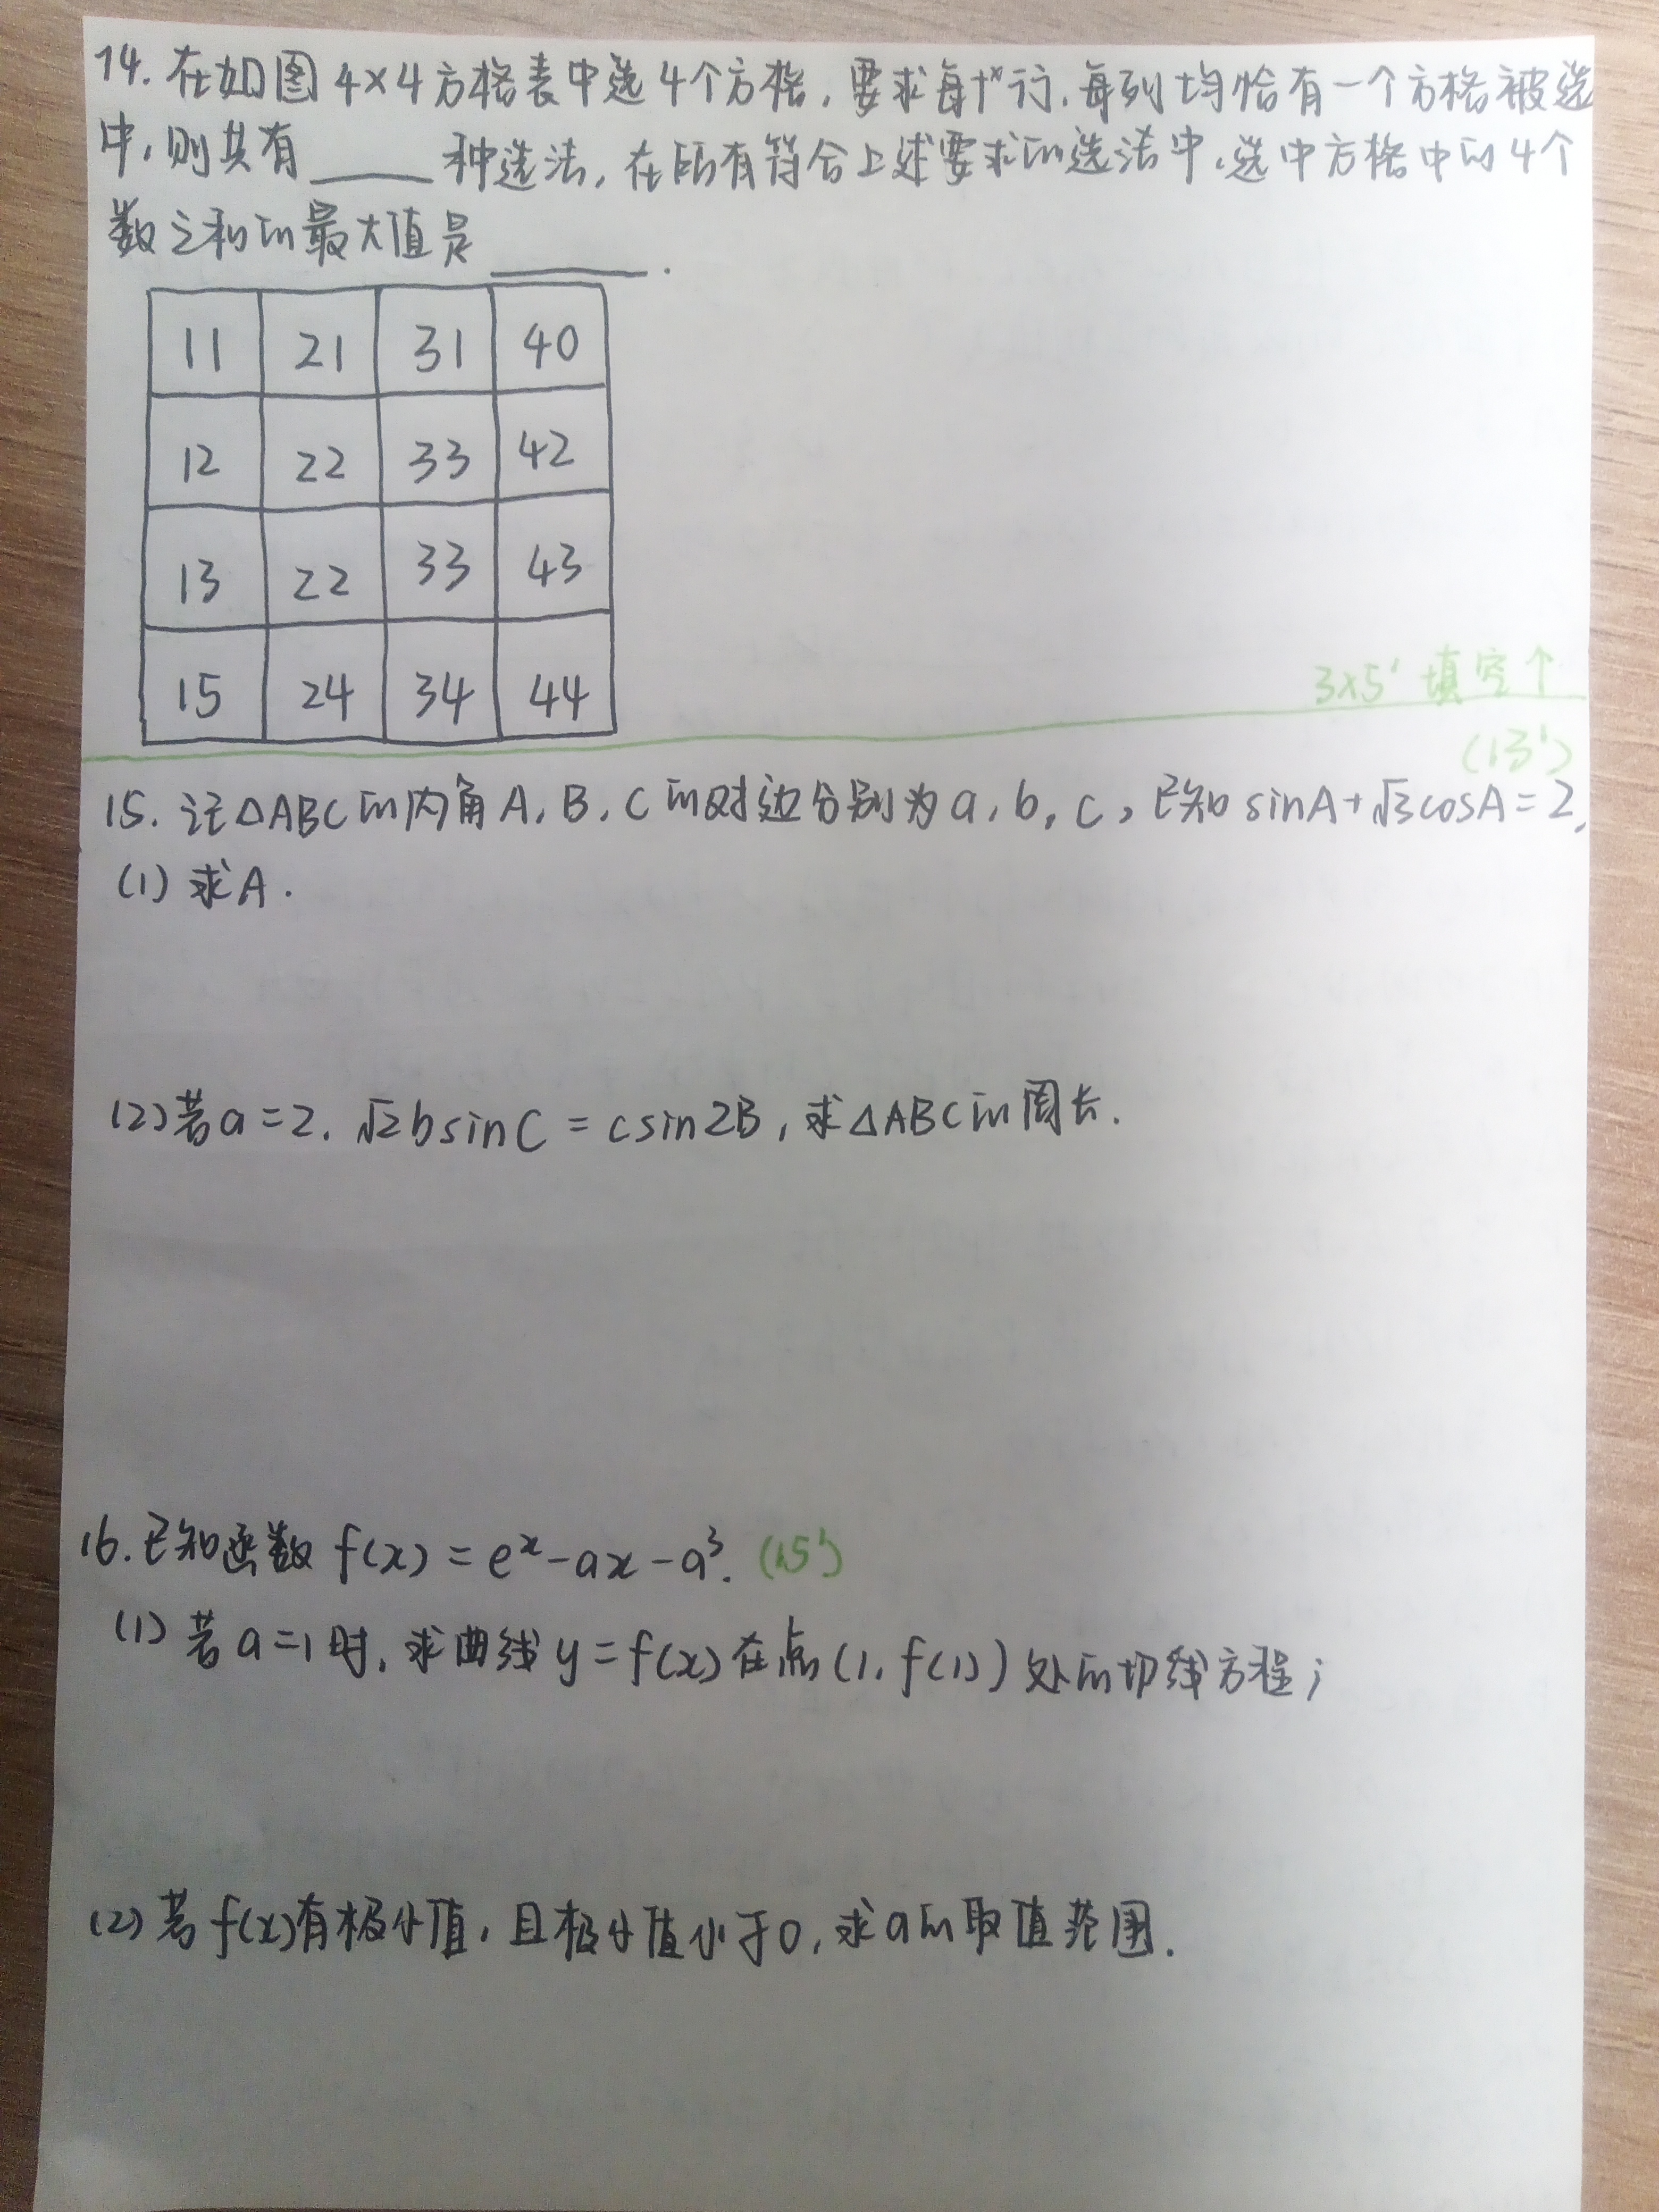 14. 在如图4×4方格表中选4个方格,要求每个行,每列均恰有一个方格被选
中,则共有____种选法,在所有符合上述要求的选法中,选中方格中的4个
数之和的最大值是____.
11 21 31 40
12 22 33 42
13 22 33 43
15 24 34 44
3×5' 填空↑
(13')
15. 记△ABC的内角A,B,C的对边分别为a,b,c,已知sinA+√3cosA=2.
(1) 求A.
(2)若a=2.√2bsinC=csin2B,求△ABC的周长.
16.已知函数f(x)=eˣ-ax-a³.(15')
(1)若a=1时,求曲线y=f(x)在点(1,f(1))处的切线方程;
(2)若f(x)有极小值,且极小值小于0,求a的取值范围.